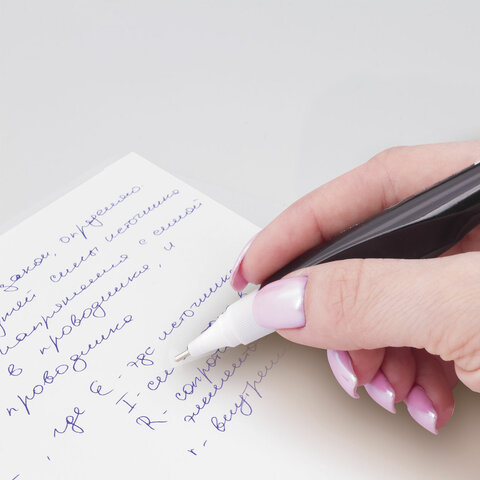 закон, определяю
щей силы источника
напряжения с силой
в проводнике, и
проводника
, где Ɛ - эдс источника
I - си
R - сопрот
r - внутрен